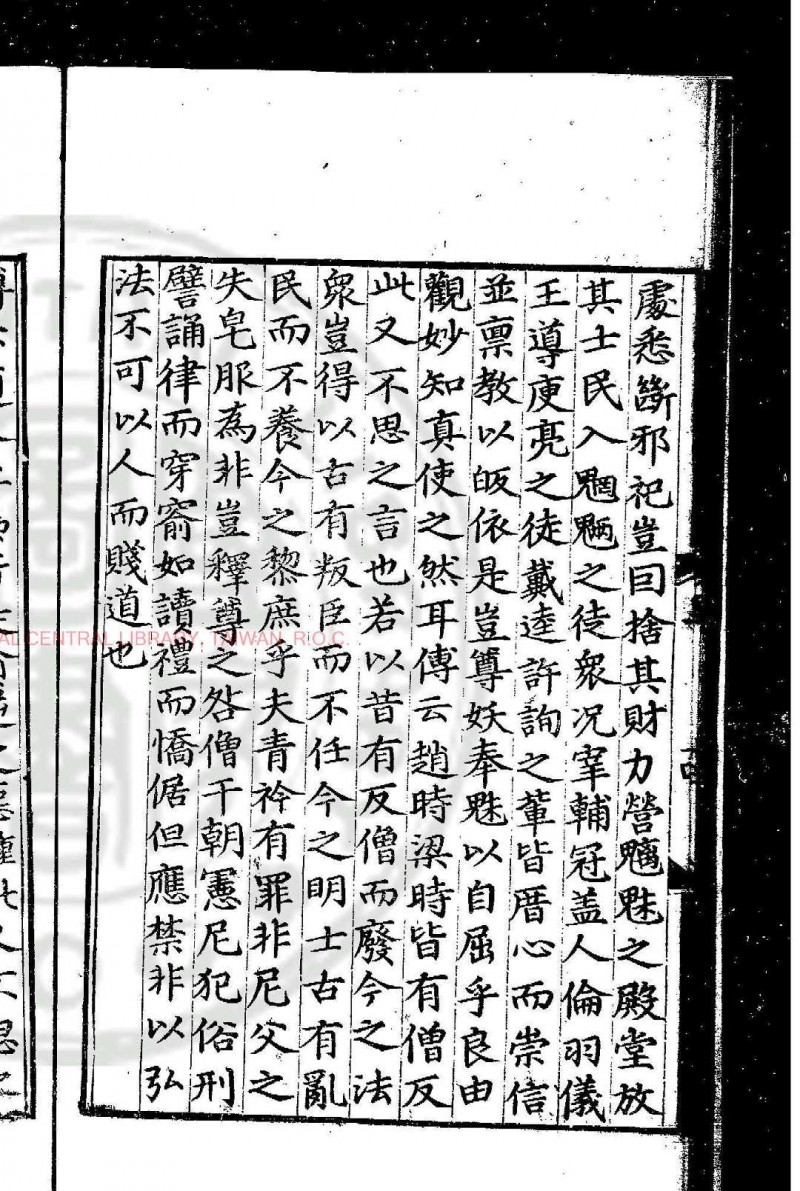 處悉斷邪祀豈曰捨其財力營魑魅之殿堂放
其士民入魍魎之徒衆况宰輔冠盖人倫羽儀
王導庾亮之徒戴逵許詢之輩皆厝心而崇信
並禀教以皈依是豈尊妖奉魅以自屈乎良由
觀妙知真使之然耳傅云趙時梁時皆有僧反
此又不思之言也若以昔有反僧而廢今之法
衆豈得以古有叛臣而不任今之明士古有亂
民而不養今之黎庶乎夫青衿有罪非尼父之
失皂服為非豈釋尊之咎僧干朝憲尼犯俗刑
譬誦律而穿窬如讀禮而憍倨但應禁非以弘
法不可以人而賤道也
AL CENTRAL LIBRARY, TAIWAN, R.O.C.